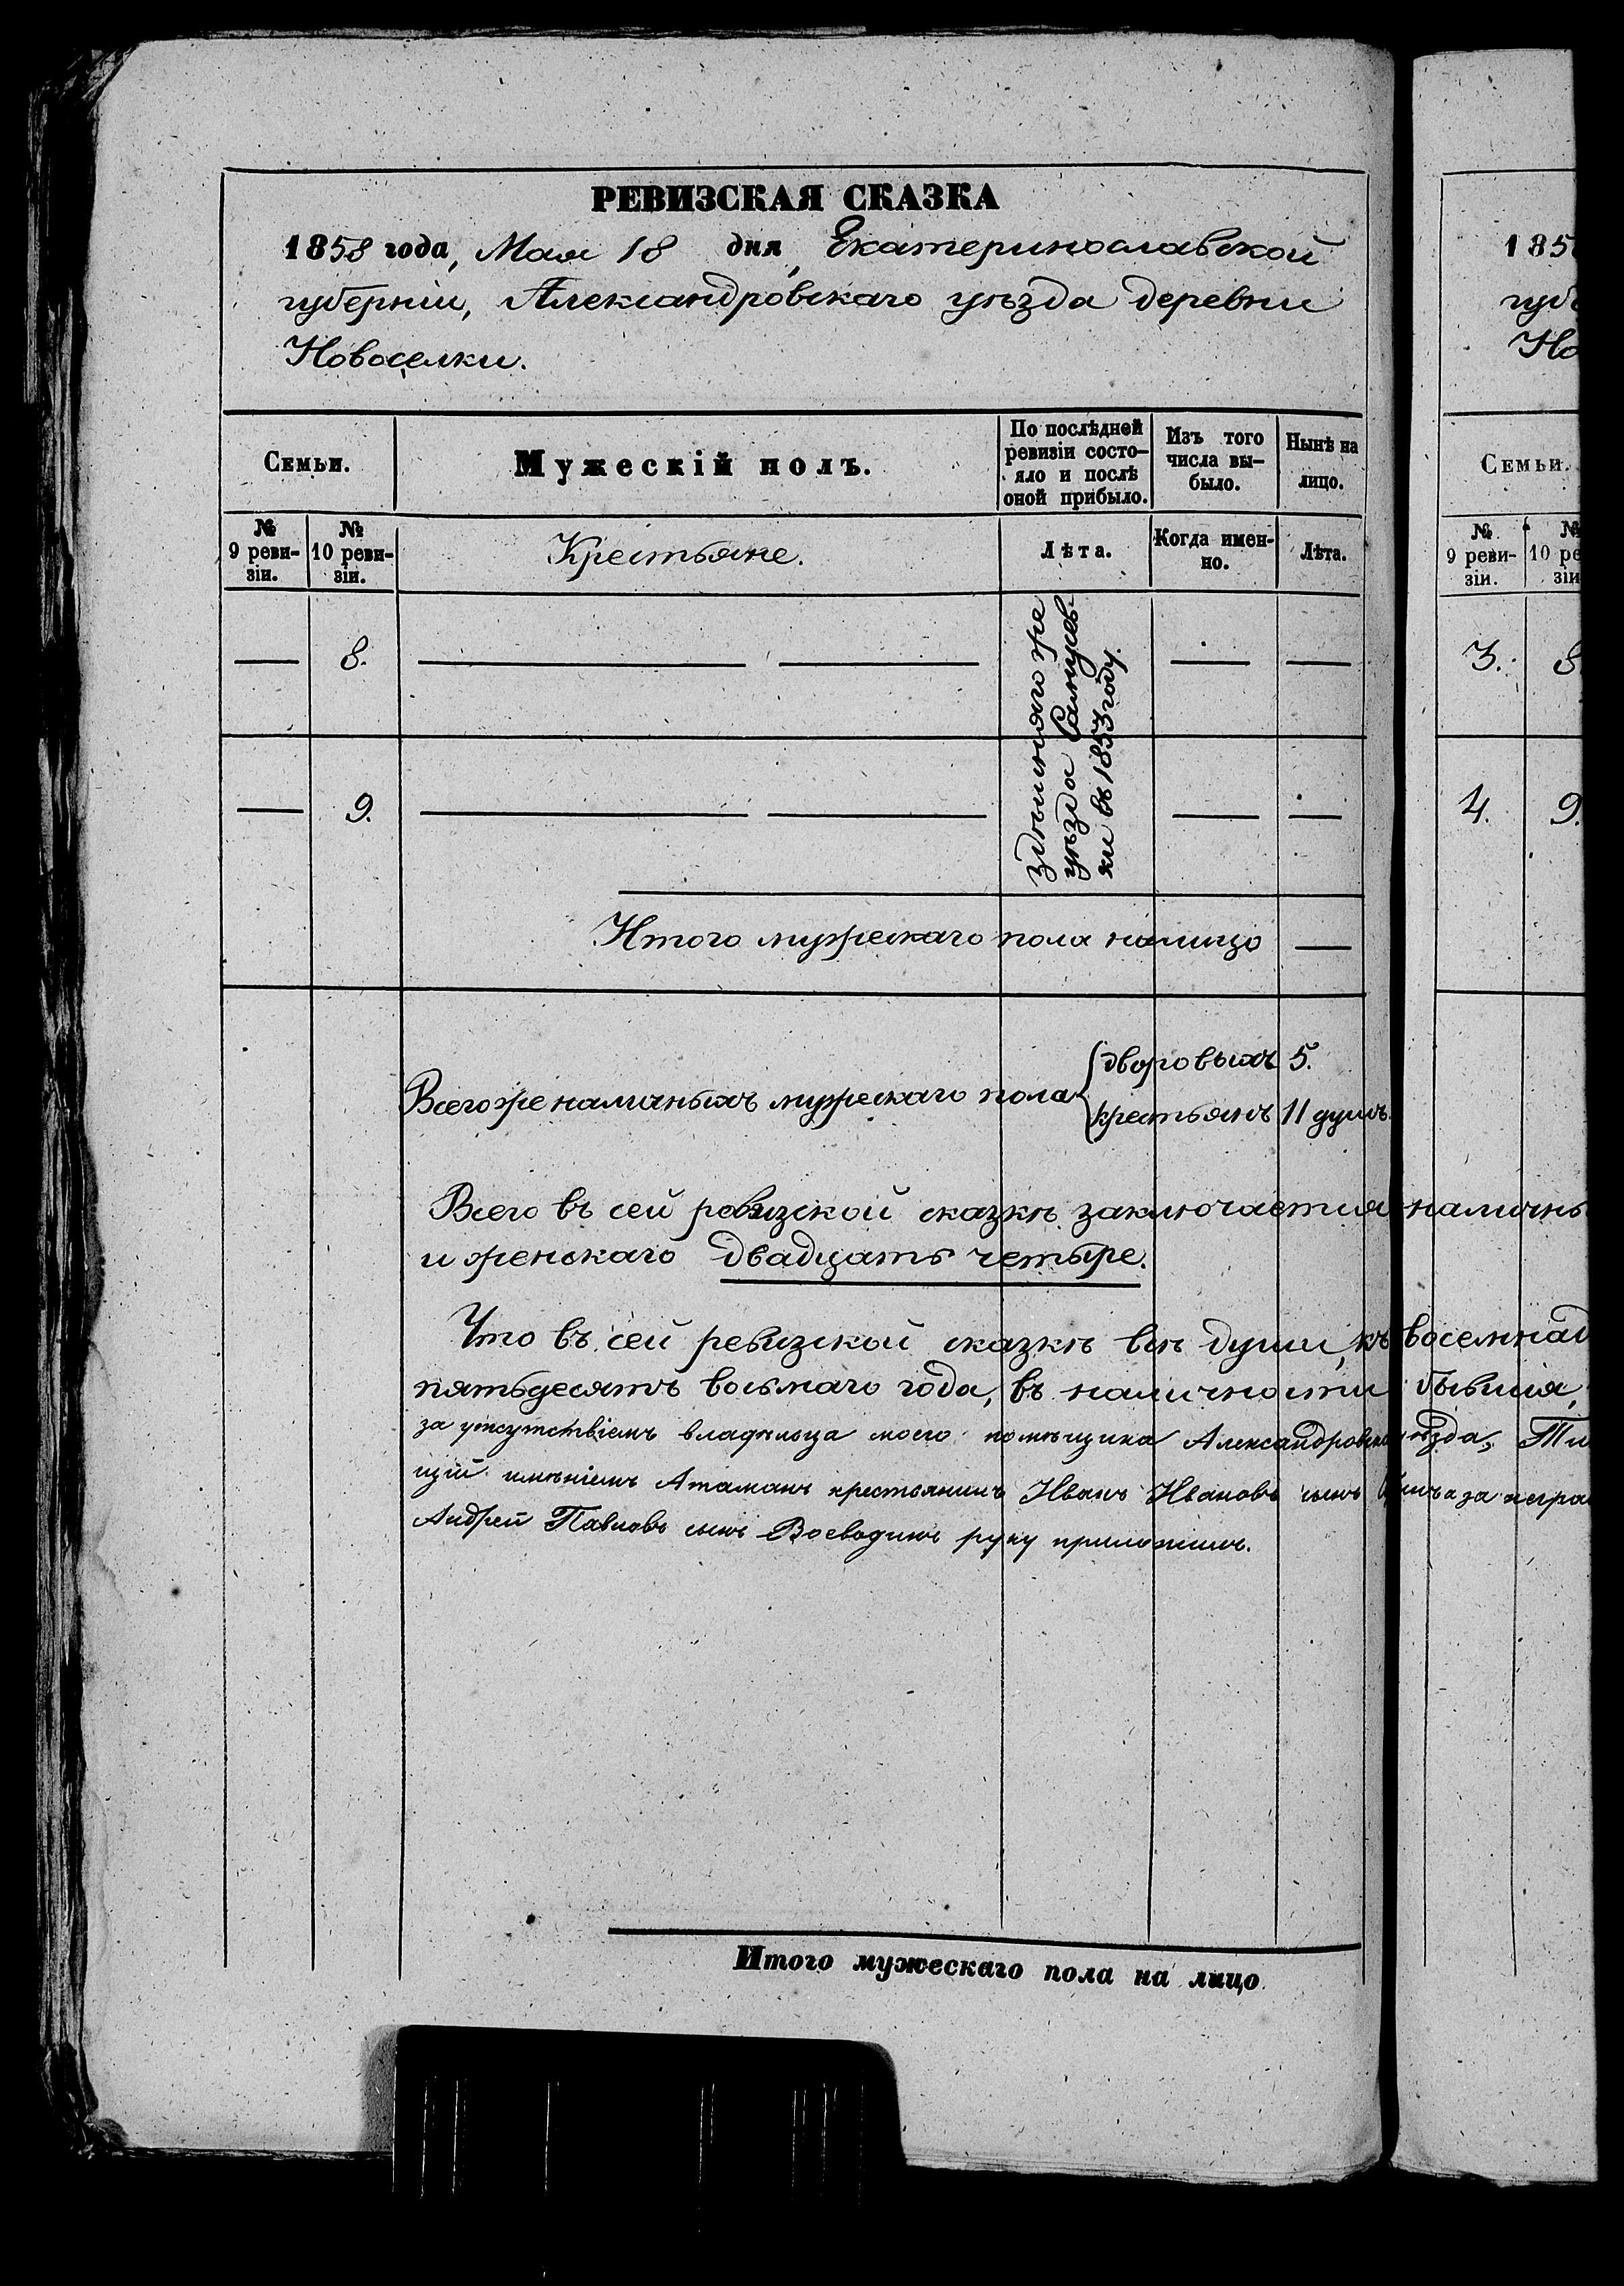 РЕВИЗСКАЯ СКАЗКА
1858 года, Мая 18 дня, Екатеринославской
губерніи, Александровскаго уѣзда деревни
Новоселки.
Семьи.
Мужескій полъ.
По послѣдней ревизіи состо-яло и послѣ оной прибыло.
Изъ того числа вы-было.
Нынѣ на лицо.
№ 9 реви-зіи.
№ 10 реви-зіи.
Крестьяне.
Лѣта.
Когда имен-но.
Лѣта.
— 8. — — — —
здѣшняго же
уѣзда
въ 1853 году.
— 9. — — — —
Итого мужескаго пола налицо —
Всего же наличныхъ мужескаго пола
дворовыхъ 5.
крестьянъ 11 душъ.
Всего въ сей ревизской сказкѣ заключается наличны
и женскаго двадцать четыре.
Что въ сей ревизской сказкѣ всѣ души, къ восемнад
пятьдесятъ восьмаго года, въ наличности бывшія,
за отсутствіемъ владѣльца моего помѣщика Александровск уѣзда,
щій имѣніемъ Атаманъ крестьянинъ Иванъ Ивановъ сынъ а за неграм
Андрей Павловъ сынъ Воеводинъ руку приложилъ.
Итого мужескаго пола на лицо
185
губе
Но
Семьи.
№ 9 реви-зіи.
№ 10 ре зіи
3. 8
4. 9.